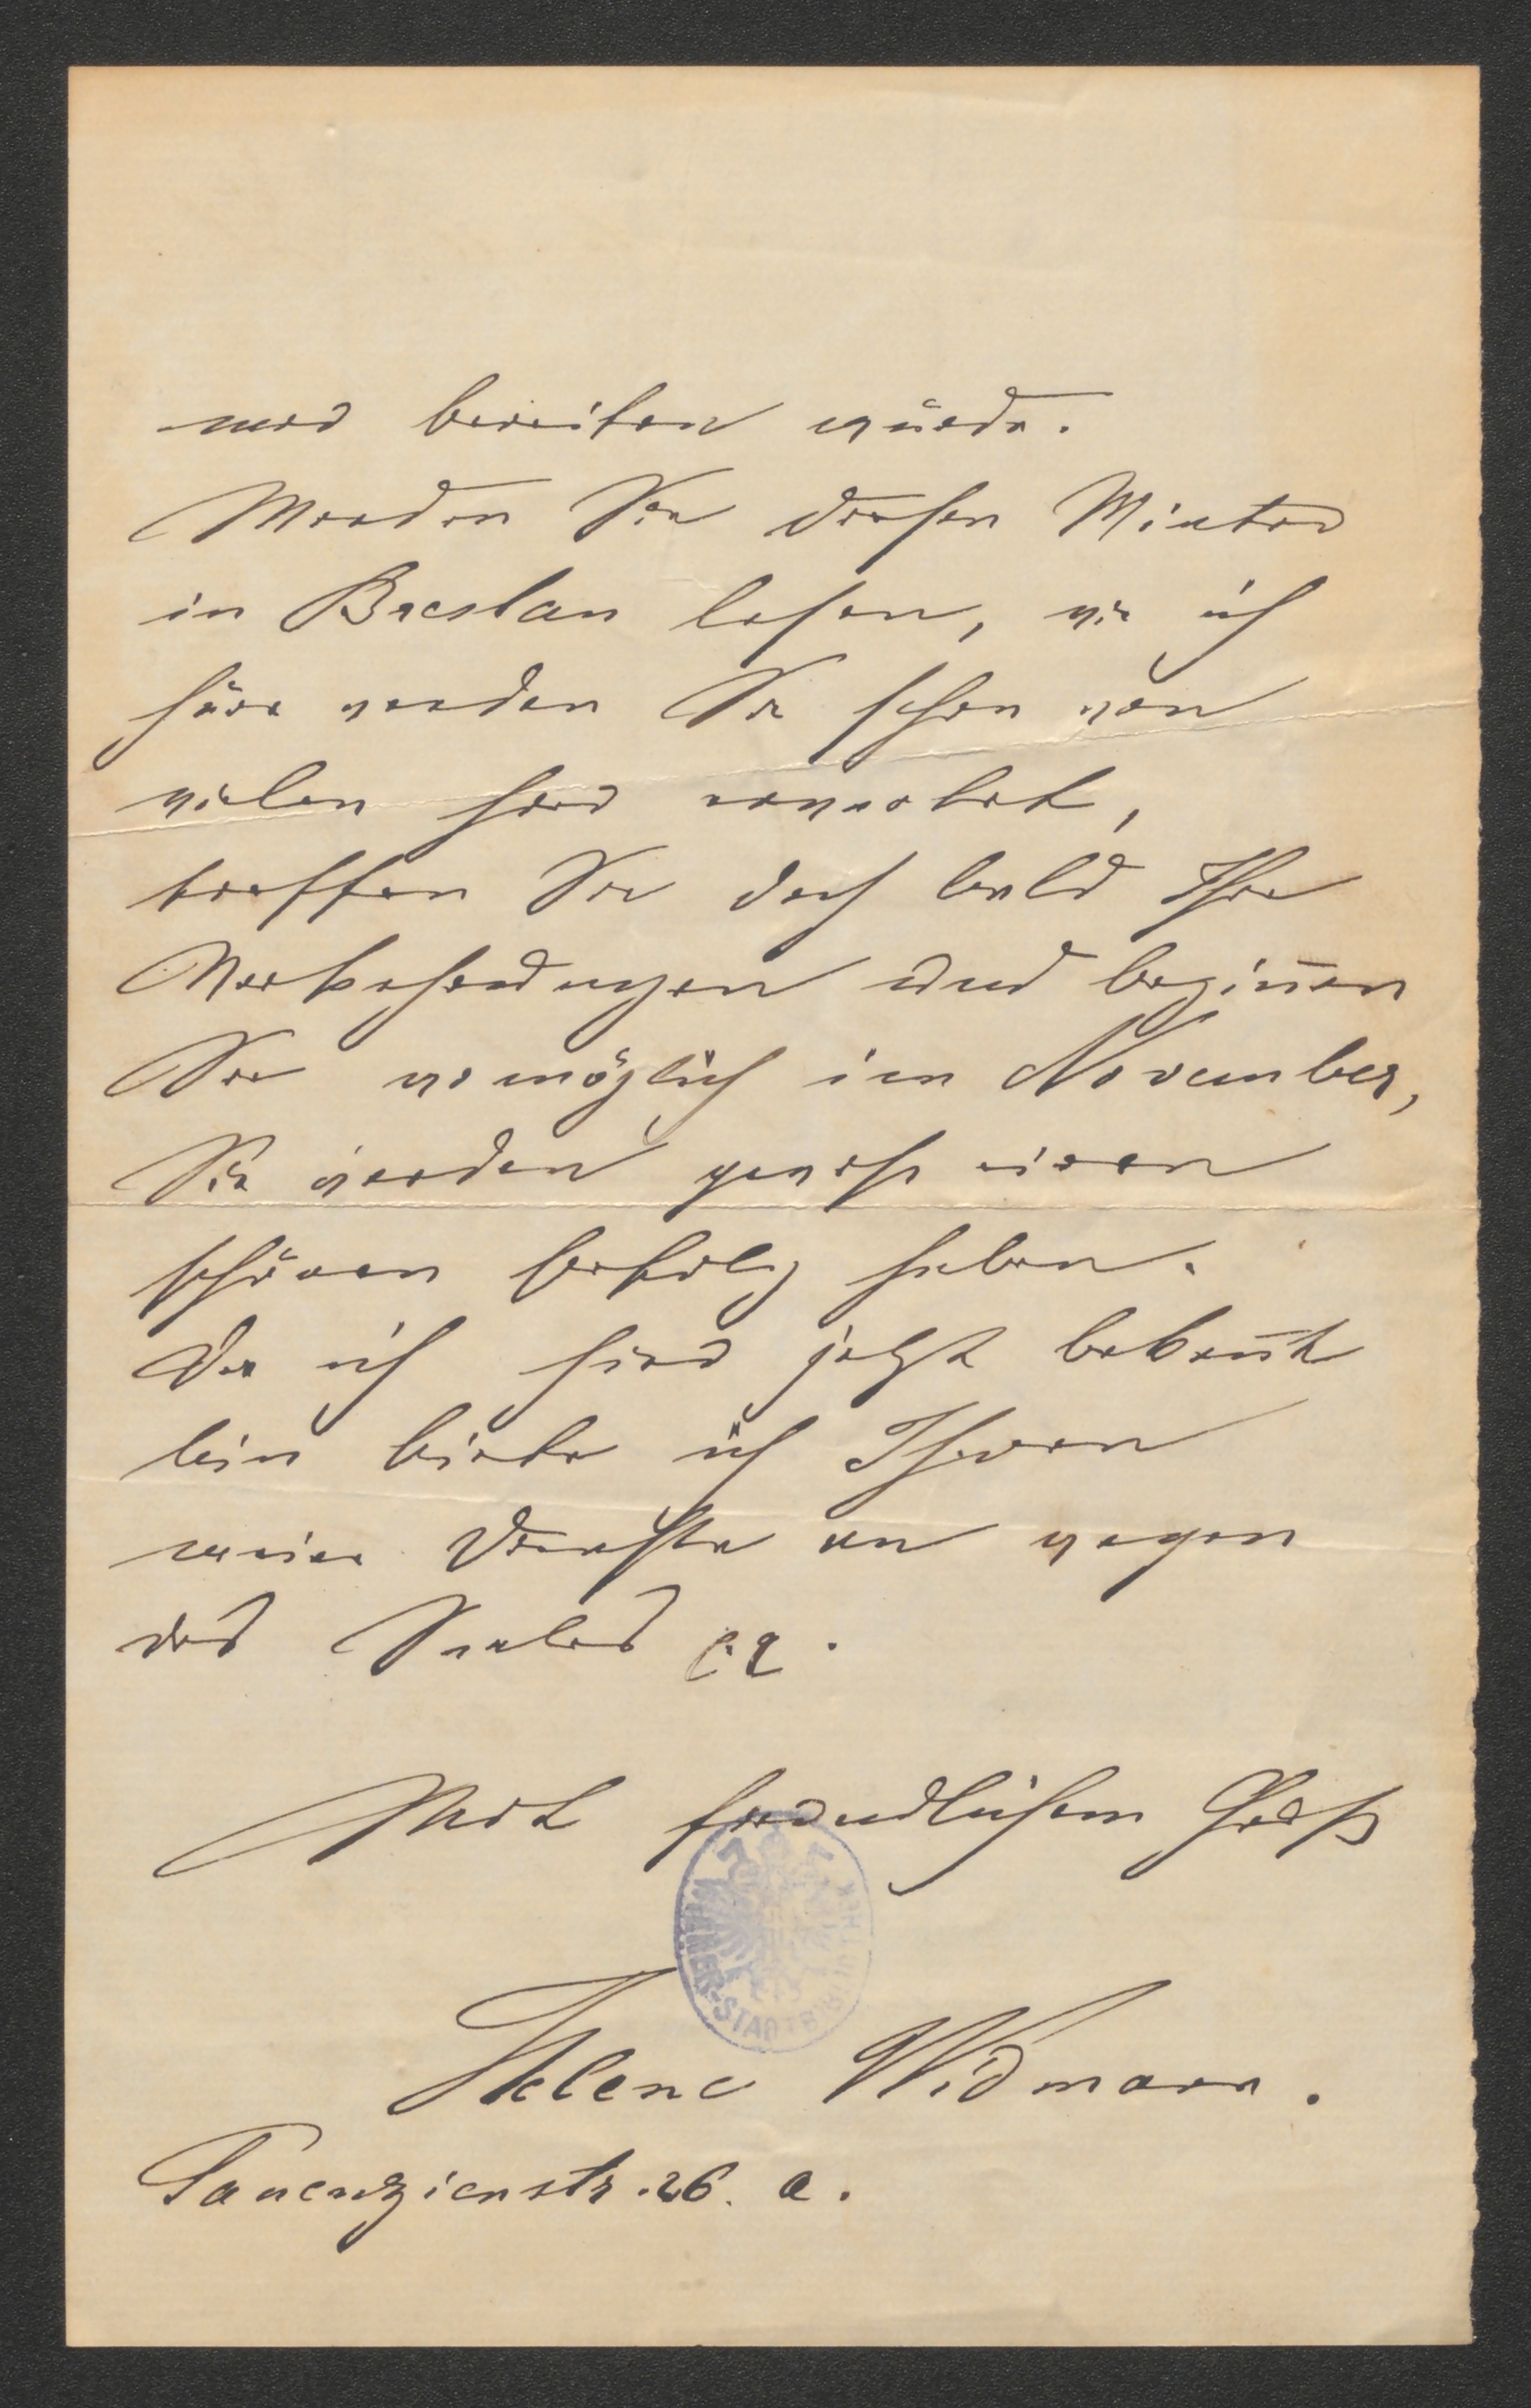 mir bereiten würde.
Werden Sie diesen Winter
in Breslau lesen, wie ich
höre werden Sie schon von
vielen hier erwartet,
treffen Sie doch bald Ihre
Vorbereitungen und begin̅en
Sie womöglich im November,
Sie werden gewiss einen
schönen Erfolg haben.
Da ich hier jetzt bekan̅t
bin biete ich Ihnen
meine Dienste an wegen
des Saales etz.
Mit freundlichem Gruß
Helene Widmann.
Tauenzienstr. 26. a.
WIENER-STADTBIBLIOTHEK